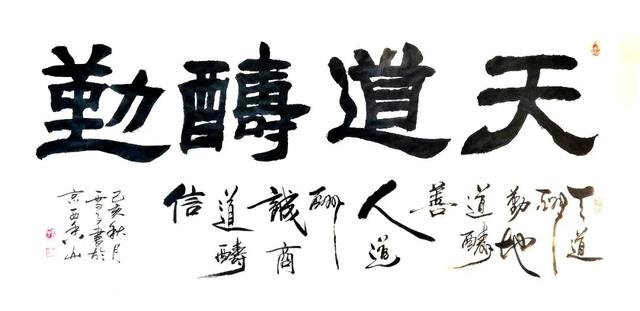 天道醻勤
天道
酬
勤地
道醻
善
人道
酬
誠商
道醻
信
己亥秋月
書於
京西香山